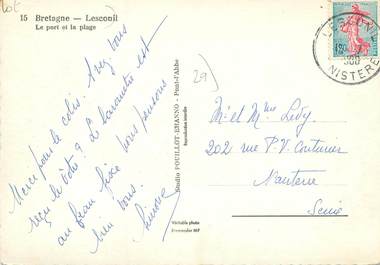 lot
15 Bretagne — Lesconil
Le port et la plage
Merci pour le colis. Avez vous
reçu le vôtre ? Le baromètre est
au beau fixe nous pensons
bien vous.
Simone
Studio POUILLOT-EHANNO - Pont-l'Abbé
Reproduction interdite
Véritable photo
29)
LESCONIL
NISTERE
M. et Mme Ledy
202 rue P V. Couturier
Nanterre
Seine